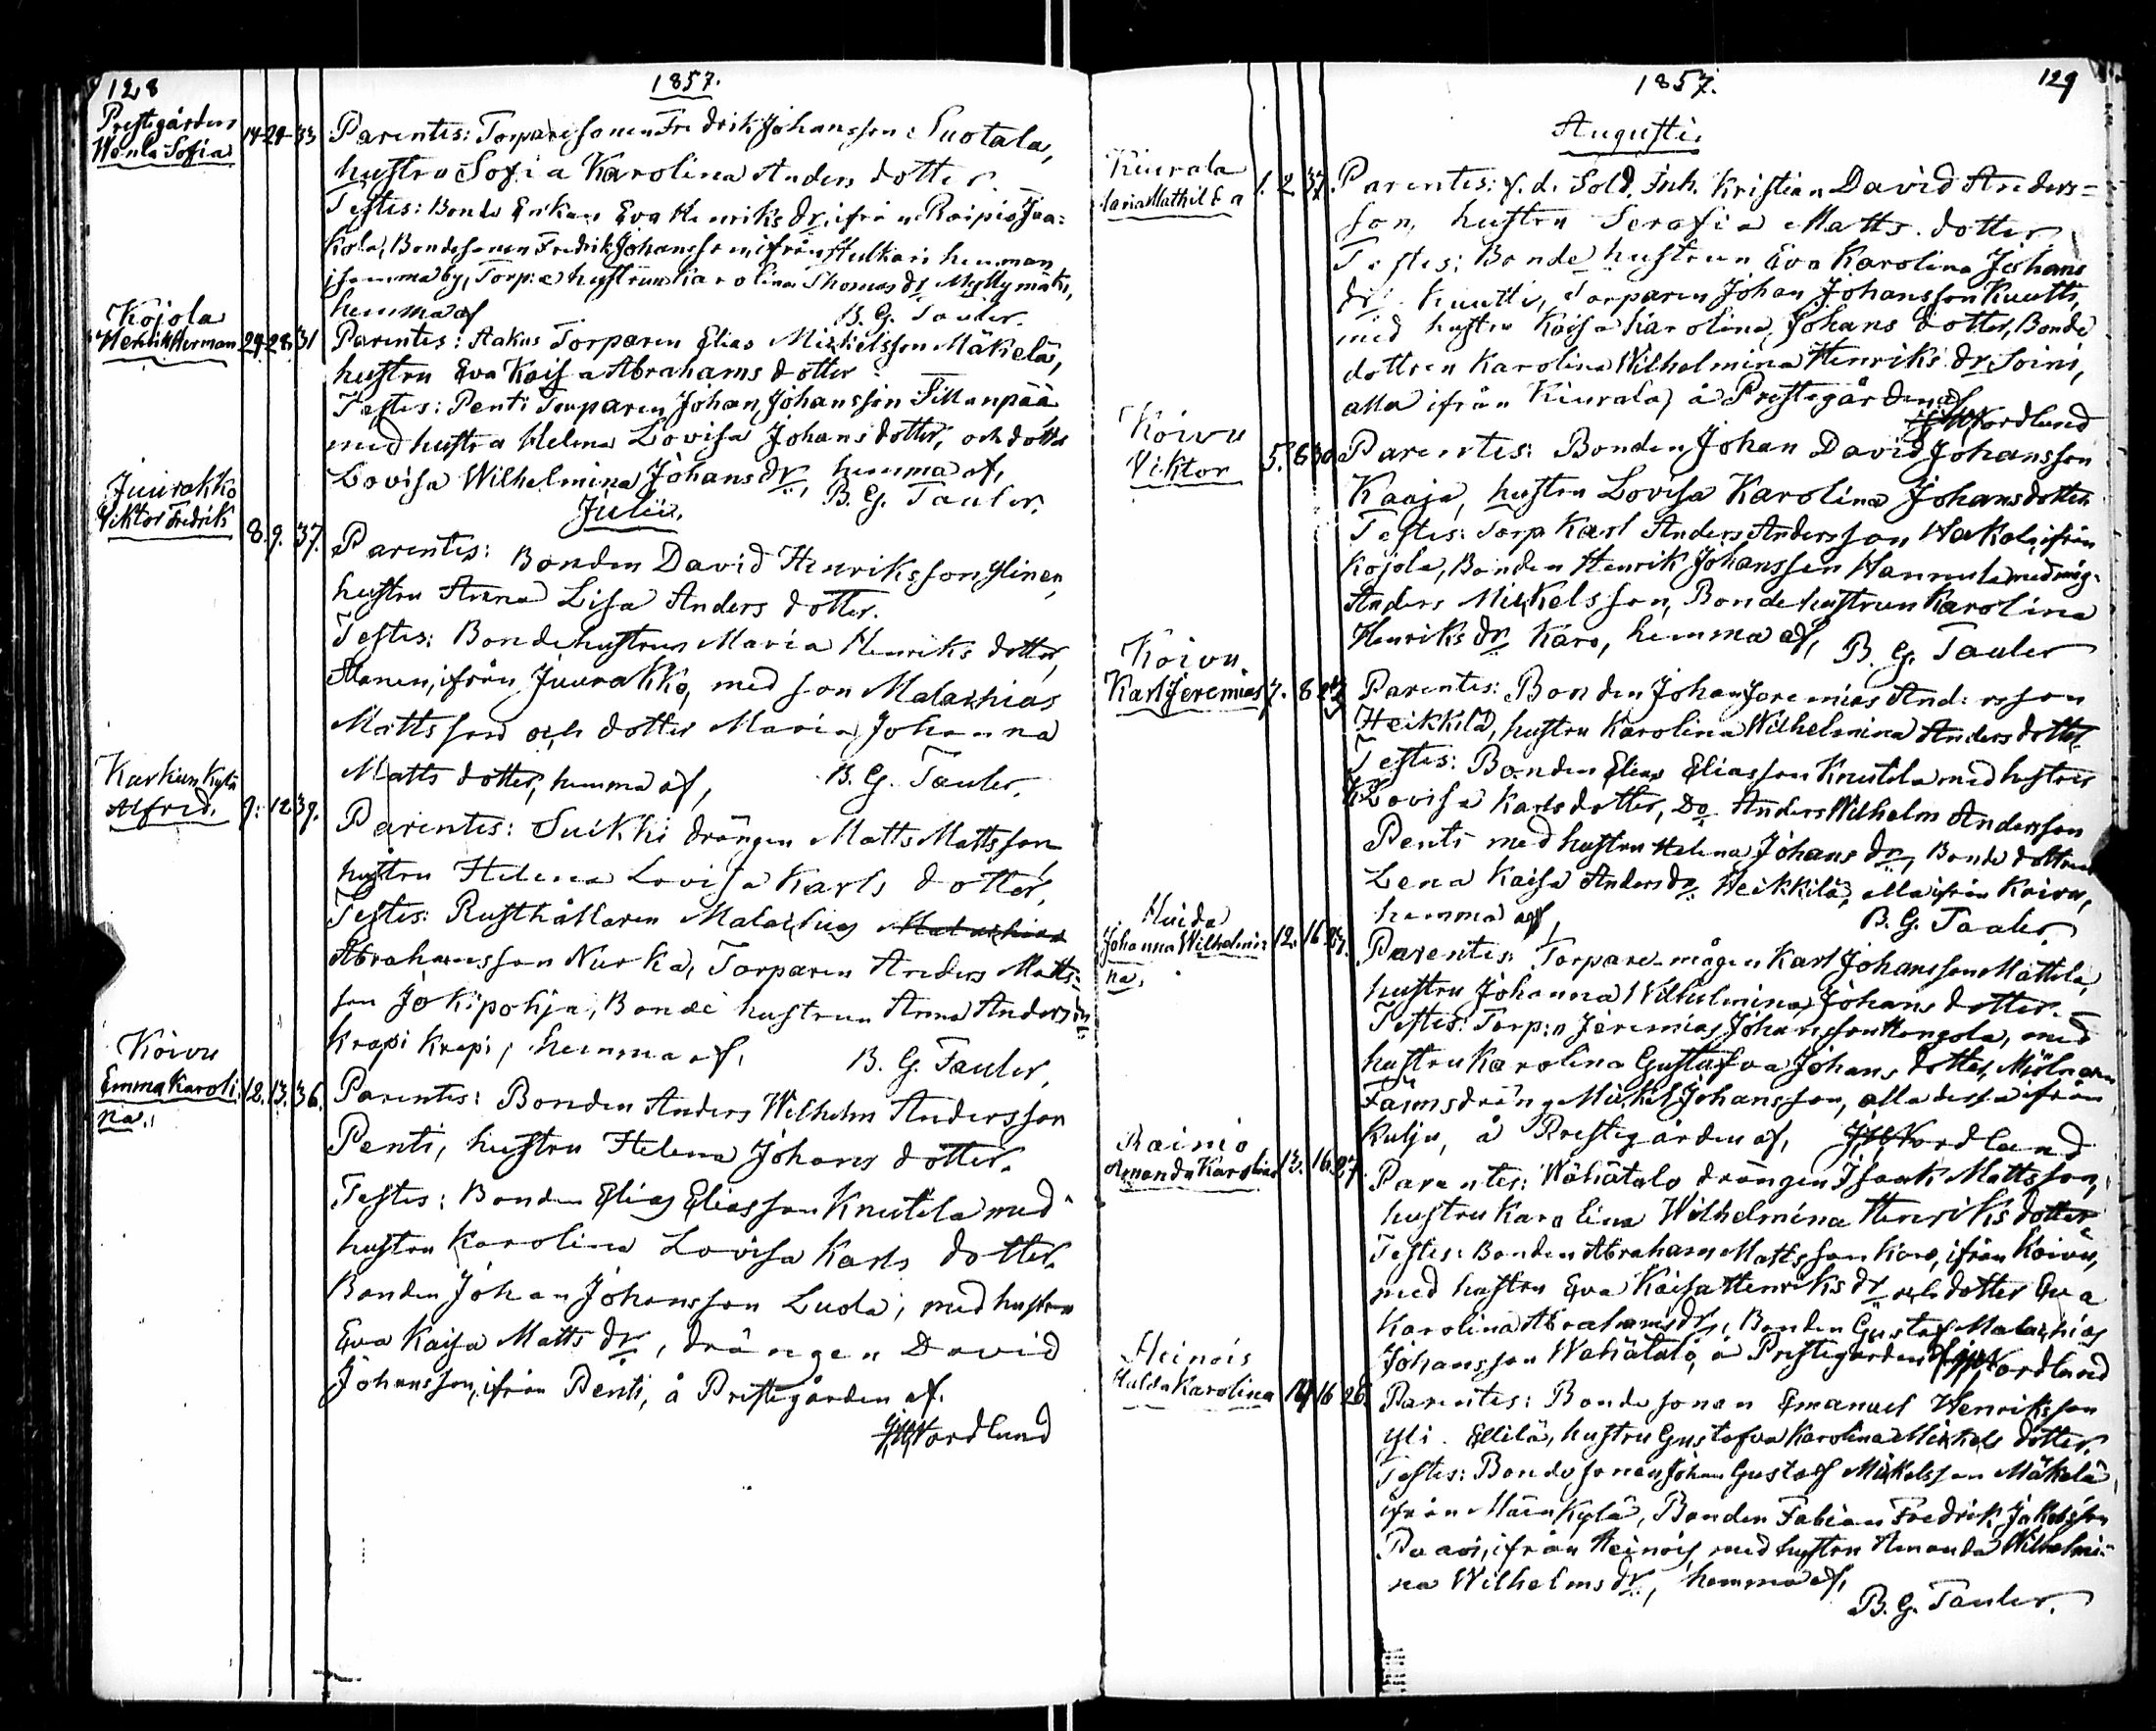 128
1857.
Prestegården
Wenla Sofia
14 24 33
Parentes: Torparesonen Fredrik Johansson Suotala,
hustru Sofia Karolina Anders dotter.
Testes: Bonde Enkan Eva Henriks dr, ifrån Raipio Jaa-
kola, Bondesonen Fredrik Johansson, ifrån Hulkari hemman
i samma by, Torp:e hustrun Karolina Thomas dr Myllymäki,
hemma af B. G. Tauler.
Kojola
Henrik Herman
24 28 31
Parentes: Aakus Torparen Elias Michelsson Mäkelä,
hustru Eva Kaisa Abrahams dotter
Testes: Penti Torparen Johan Johansson Fillanpää
med hustru Helena Lovisa Johans dotter, och dotter
Lovisa Wilhelmina Johans dr, hemma af,
B. G. Tauler.
Julii.
Juurakko
Viktor Fredrik
8. 9. 37.
Parentes: Bonden David Henriksson Ylinen,
hustru Anna Lisa Anders dotter.
Testes: Bondehustrun Maria Henriks dotter,
Alanen, ifrån Juurakko, med son Malachias
Mattsson och dotter Maria Johanna
Matts dotter, hemma af, B. G. Tauler.
Karhunkylä
Alfred.
9. 12 39.
Parentes: Suikki drängen Matts Mattsson
hustru Helena Lovisa Karls dotter,
Testes: Rusthållaren Malachias Malachias
Abrahamsson Nurka, Torparen Anders Matts-
son Jokipohja, Bonde hustrun Anna Anders dr
Krapi Krapi, hemma af. B. G. Tauler.
Koivu
Emma Karoli
na.
12. 13. 36.
Parentes: Bonden Anders Wilhelm Andersson
Penti, hustru Helena Johans dotter.
Testes: Bonden Elias Eliasson Knutila med
hustru Karolina Lovisa Karls dotter.
Bonden Johan Johansson Luoda, med hustru
Eva Kaisa Matts dr, drängen David
Johansson, ifrån Penti, å Prestegården af.
Nordlund
1857.
129
Augusti.
Kiurala
Maria Mathilda
1. 2 37.
Parentes: f. d. Sold. Inh. Kristian David Anders-
son, hustru Serafia Matts dotter
Testes: Bonde hustrun Eva Karolina Johans
dr Kuutti, Torparen Johan Johansson Kuutti,
med hustru Kaisa Karolina Johans dotter, Bonde
dottren Karolina Wilhelmina Henriks dr Soini,
alla ifrån Kiurala, å Prestegården af
Nordlund
Koivu
Viktor
5. 8 30
Parentes: Bonden Johan David Johansson
Kaaja, hustru Lovisa Karolina Johansdotter
Testes: Torp Karl Anders Andersson Hakola, ifrån
Kojola, Bonden Henrik Johansson Hannula med måg
Anders Mickelsson, Bondehustrun Karolina
Henriks dr Karo, hemma af, B. G. Tauler
Koivu.
Karl Jeremias
7. 8
Parentes: Bonden Johan Jeremias Andersson
Heikkilä, hustru Karolina Wilhelmina Anders dotter
Testes: Bonden Elias Eliasson Knutila med hustru
K Lovisa Karls dotter, Do Anders Wilhelm Andersson
Penti med hustru Helena Johans dr, Bonde dottren
Lena Kaisa Anders dr Heikkilä, alla ifrån Koivu,
hemma af, B. G. Tauler.
Huida
Johanna Wilhelmi
na.
12. 16
Parentes: Torpare-mågen Karl Johansson Mattila,
hustru Johanna Wilhelmina Johans dotter.
Testes: Torp:n Jeremias Johansson Kangola, med
hustru Karolina Gustafva Johans dotter, Mjölnaren
Farmsdräng Mickel Johansson, alla dessa ifrån
Kulju, å Prestegården af, Nordlund
Rainio
Amanda Karolina
13. 16. 27.
Parentes: Wähätalo drängen Isaak Mattsson,
hustru Karolina Wilhelmina Henriks dotter
Testes: Bonden Abraham Mattsson Karo, ifrån Koivu,
med hustru Eva Kaisa Henriks dr och dotter Eva
Karolina Abrahams dr, Bonden Gustaf Malachias
Johansson Wähätalo, å Prestegården af Nordlund
Heinois
Hulda Karolina
14 16 26.
Parentes: Bondesonen Emanuel Henriksson
Yli Ellilä, hustru Gustafva Karolina Mickels dotter.
Testes: Bondesonen Johan Gustaf Mickelsson Mäkelä
ifrån Mäenkylä, Bonden Fabian Fredrik Jakobsson
Paavi, ifrån Heinois, med hustru Amanda Wilhelmi-
na Wilhelms dr, hemma af,
B. G. Tauler.